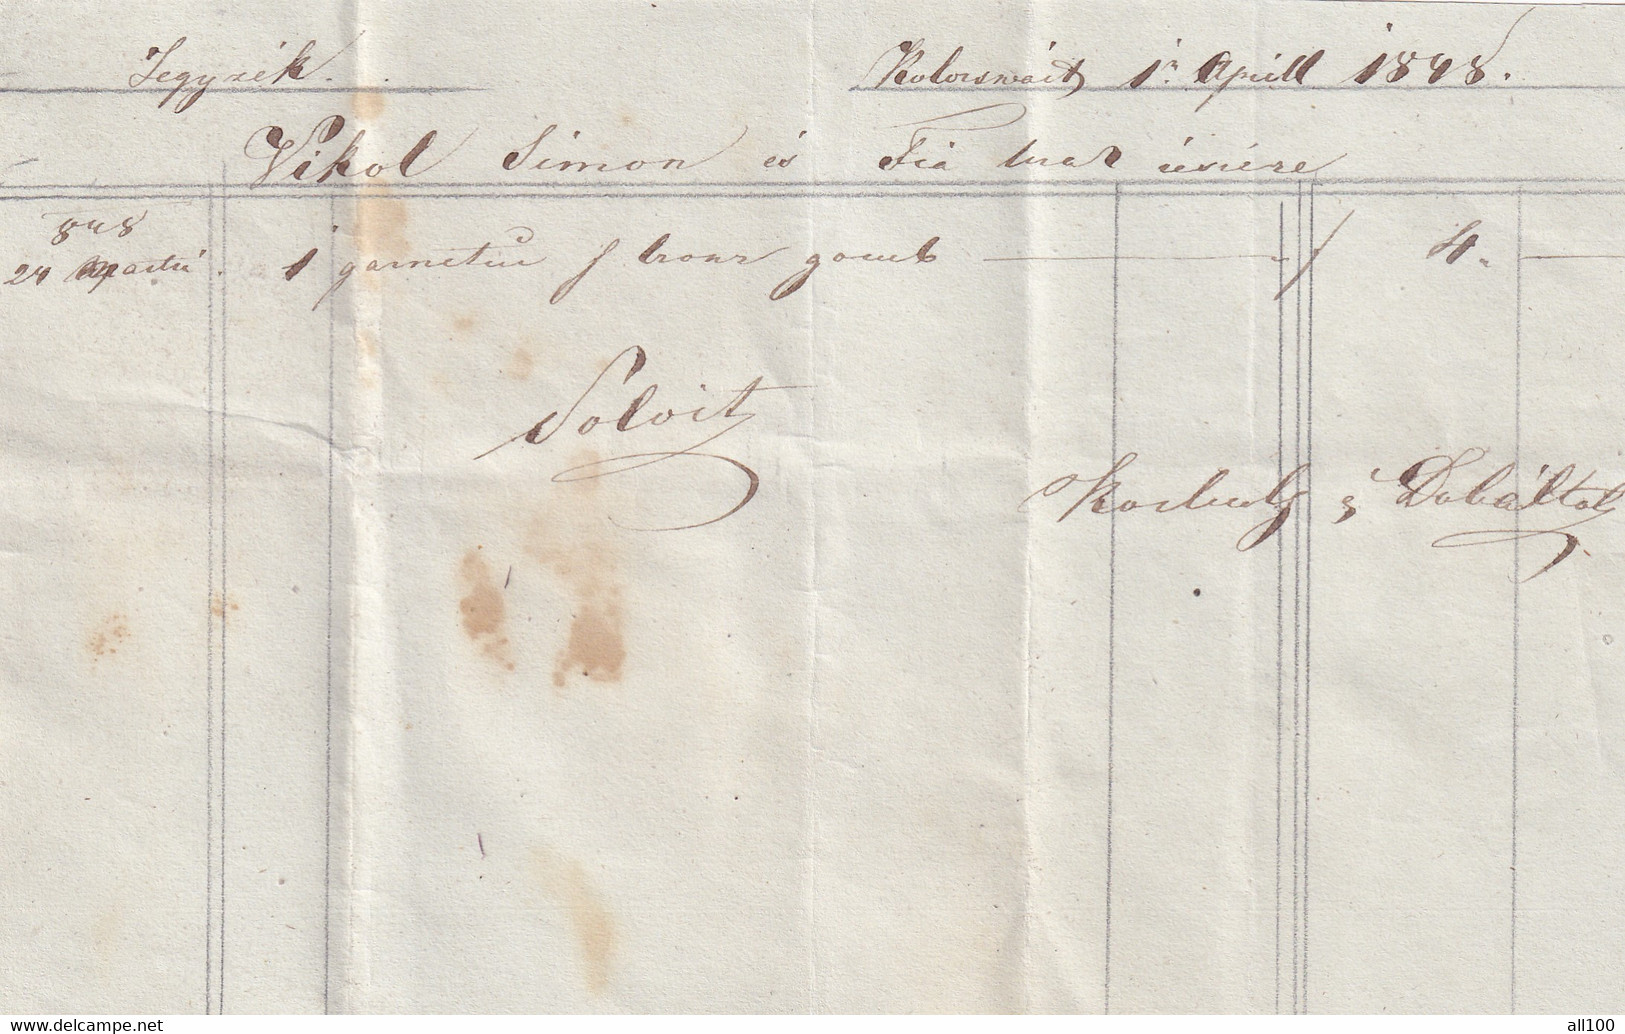 Jegyzék. Kolozsvárt 1ᵃ Aprill 1848.
Vikol Simon és Fia urak részére
848
24 Martii. 1 garnetur f bronz gomb f 4.
Solvit
Dobáltol
all100